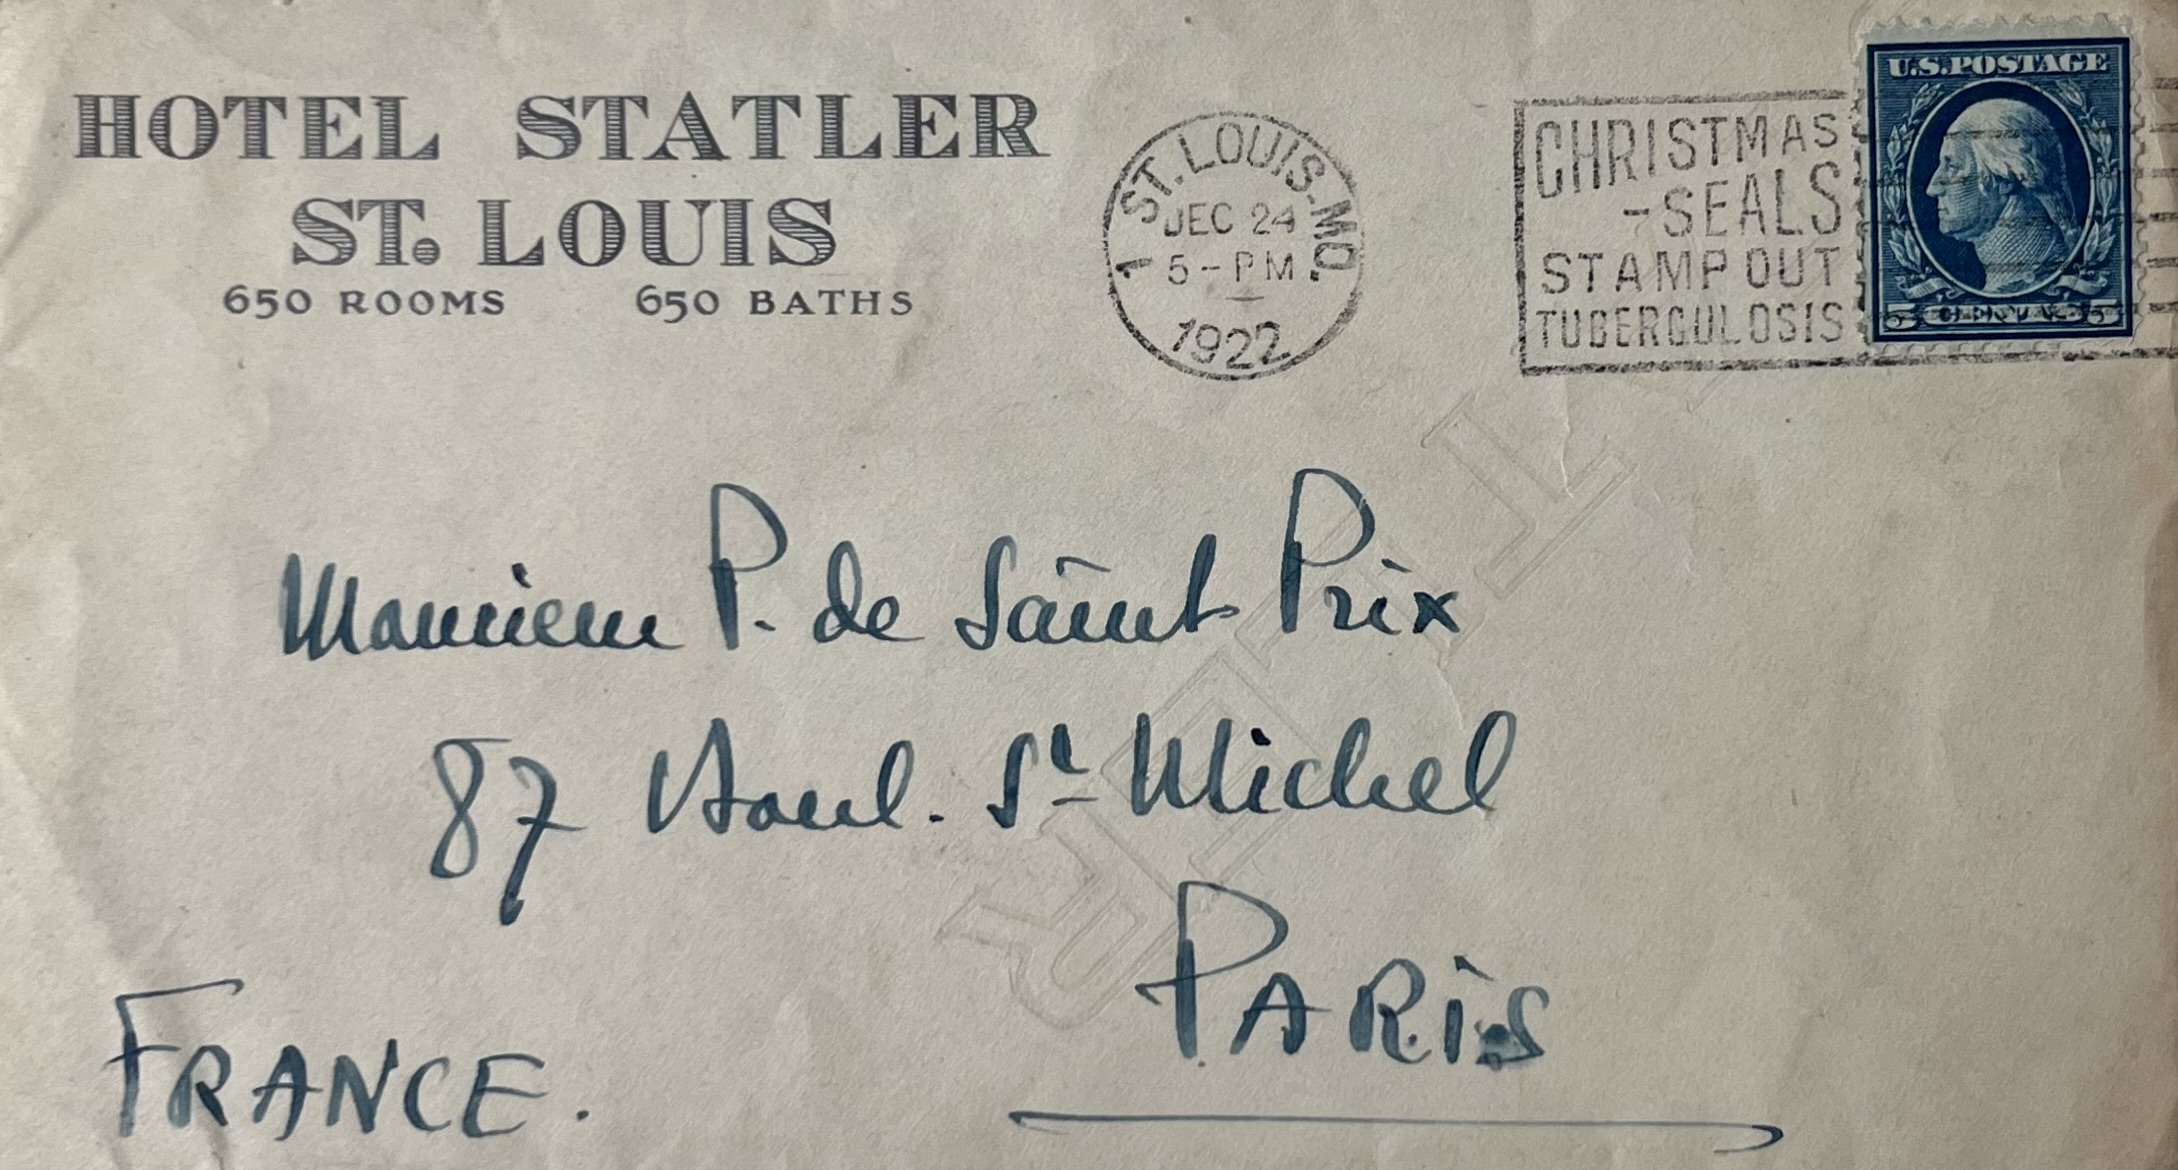 HOTEL STATLER
ST. LOUIS
650 ROOMS 650 BATHS
1 ST. LOUIS. MO.
DEC 24
5 - PM
1922
CHRISTMAS
-SEALS
STAMP OUT
TUBERCULOSIS
U.S. POSTAGE
5 CENTS 5
Monsieur P. de Saint Prix
87 Boul. St Michel
PARIS
FRANCE.